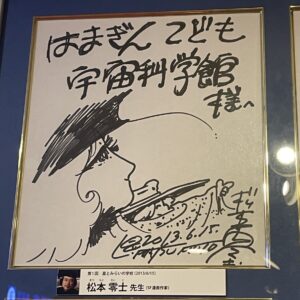 はまぎん こども
宇宙科学館
様へ
2013.6.15.
第1回 星とみらいの学校 (2013/6/15)
松本 零士 先生 (SF漫画作家)